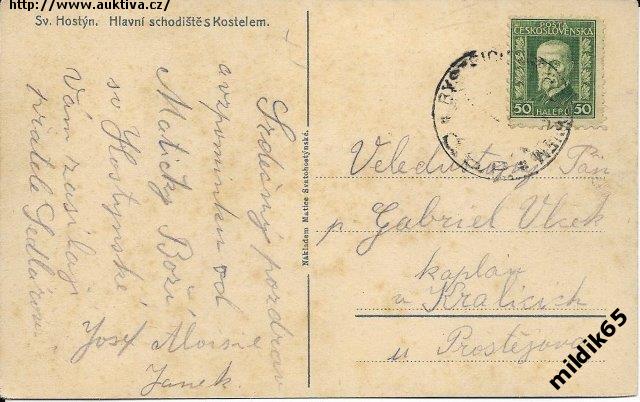 http://www.auktiva.cz
Sv. Hostýn. Hlavní schodiště s Kostelem.
Srdečný pozdrav
a vzpomínku od
Matičky Boží
sv Hostýnské
Vám zasílají
přátelé
Josef Aloisie
Janek.
Nákladem Matice Svatohostýnské.
POŠTA
ČESKOSLOVENSKÁ
50 HALÉŘŮ 50
Veledůstojný Pán
p Gabriel Vlček
kaplán
v Kralicích
u Prostějova
mildik65